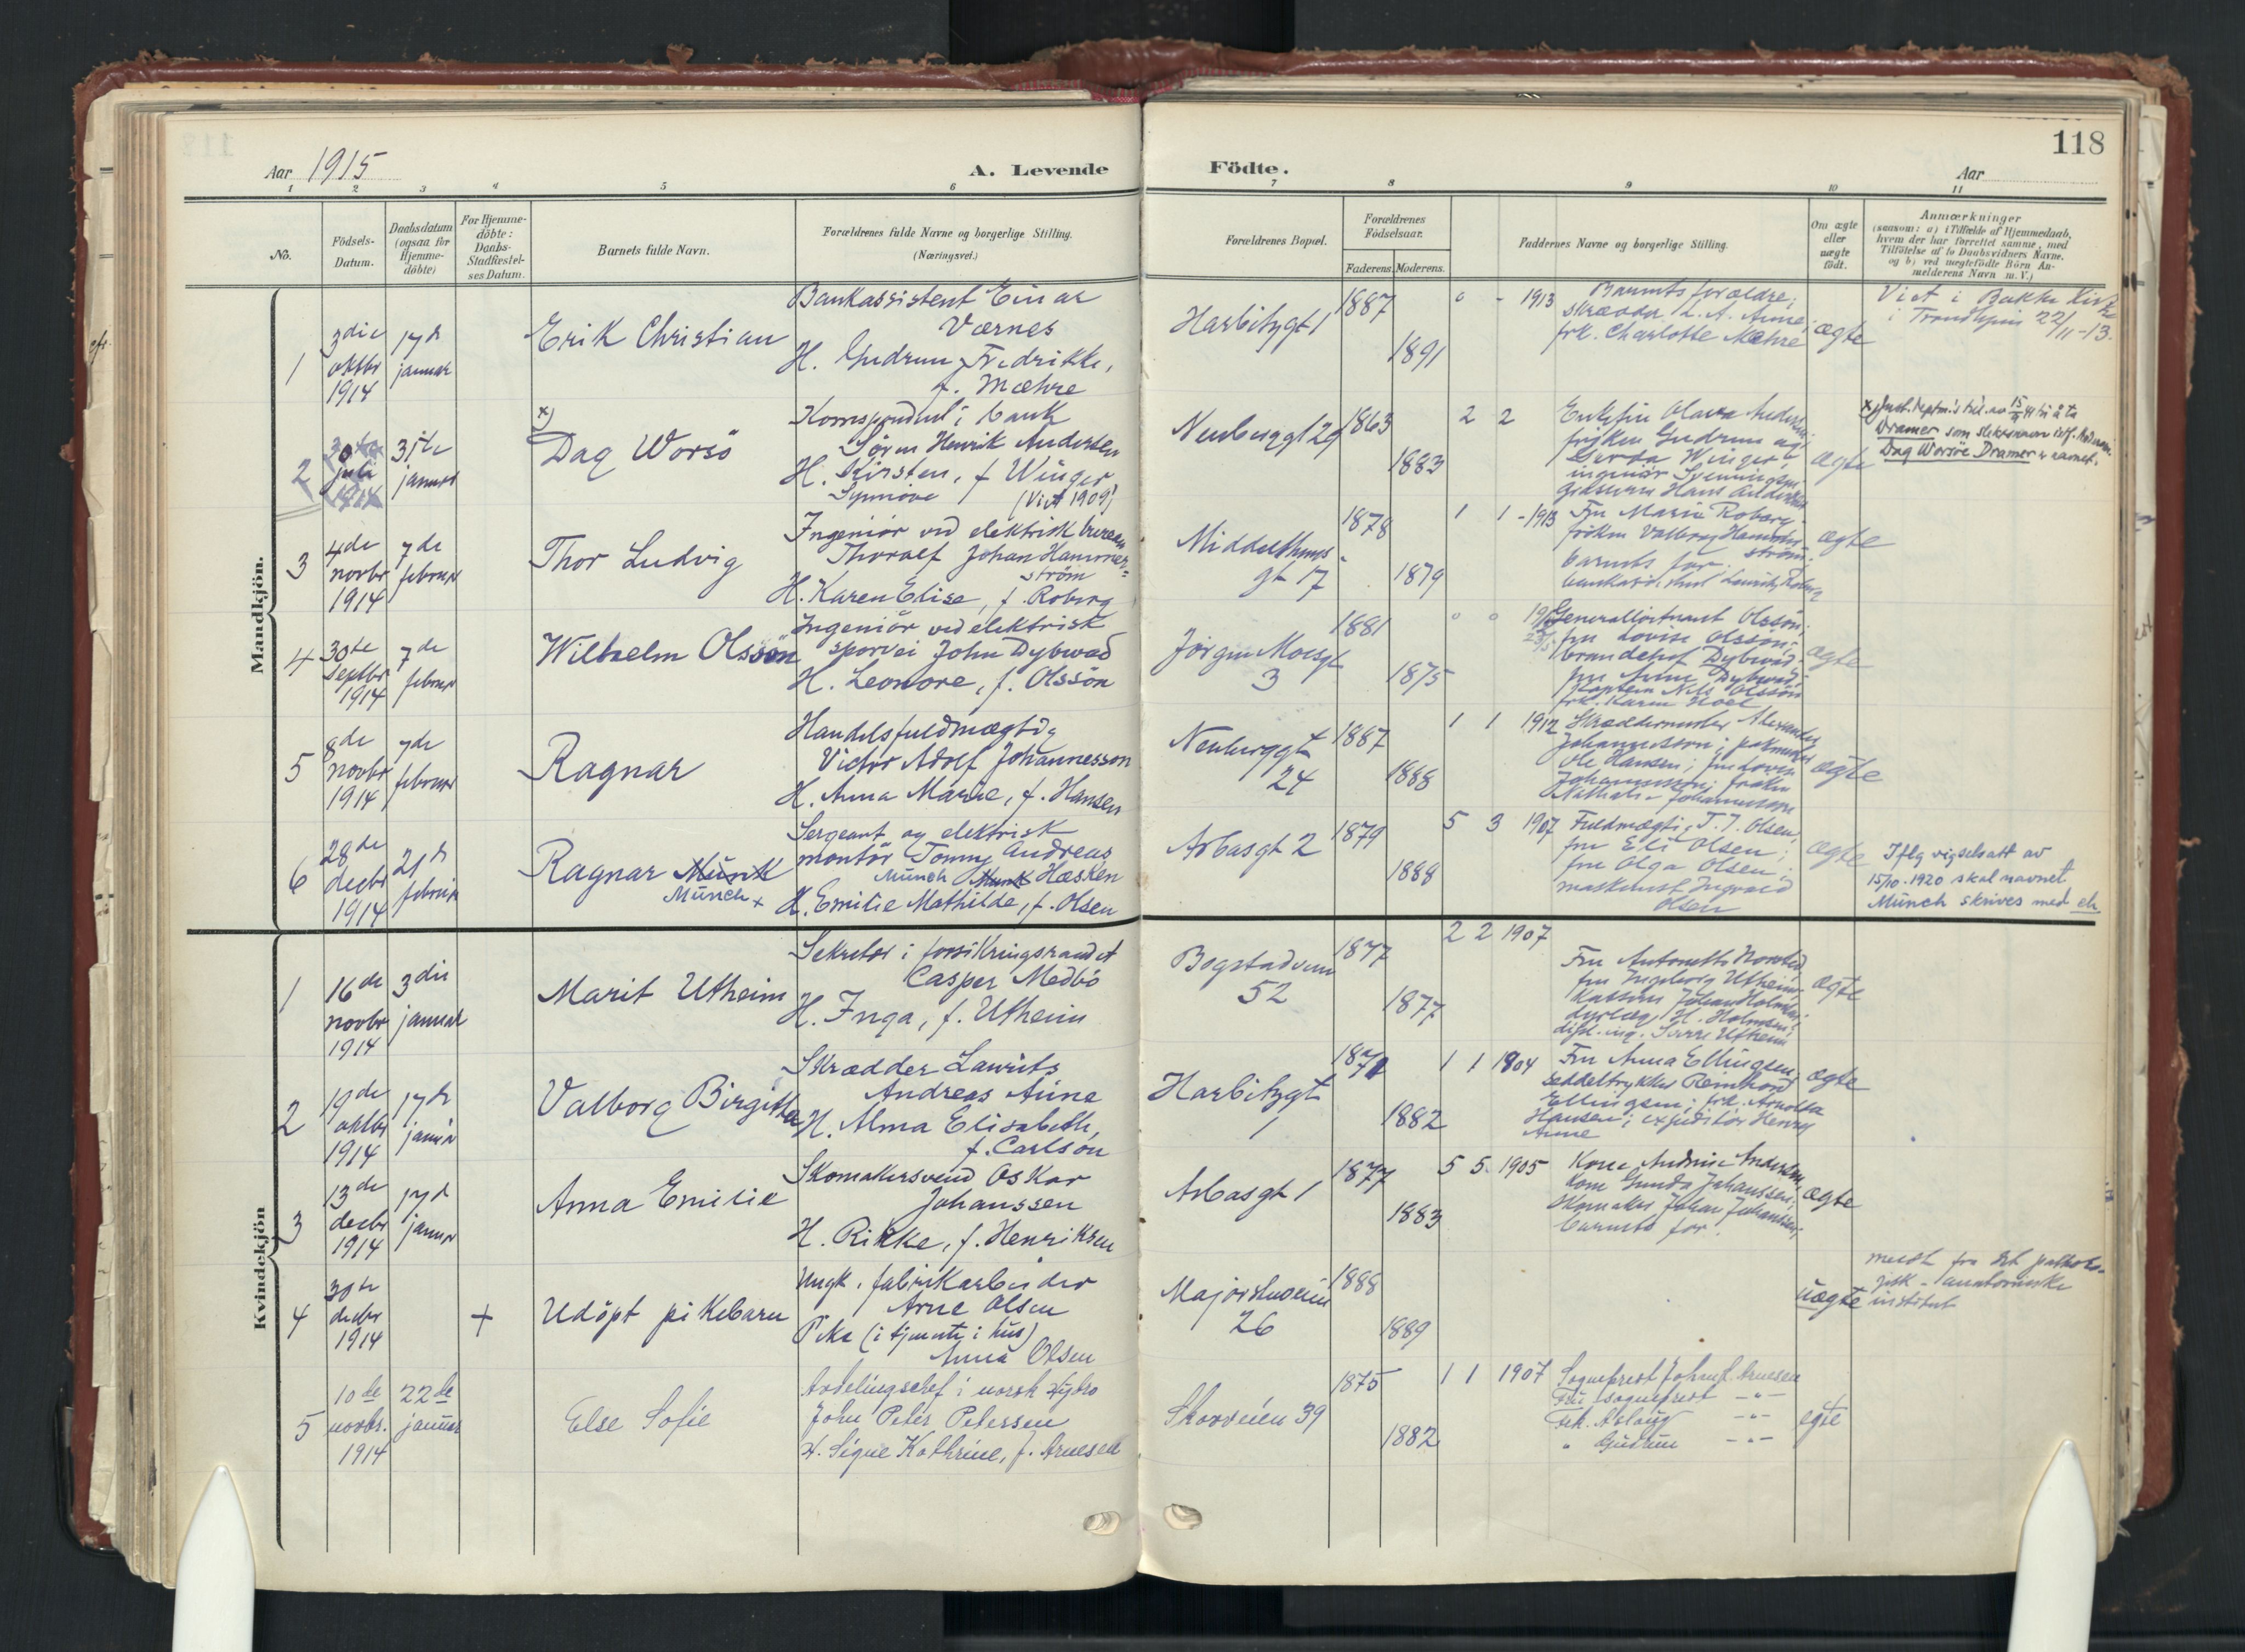 118
Aar 1915
A. Levende
Födte.
Aar
1 2 3 4 5 6 7 8 9 10 11
No.
Födsels-
Datum.
Daabsdatum
(ogsaa for
Hjemme-
döbte)
For Hjemme-
döbte:
Daabs-
Stadfæstel-
ses Datum.
Barnets fulde Navn.
Forældrenes fulde Navne og borgerlige Stilling.
(Næringsvei.)
Forældrenes Bopæl.
Forældrenes
Födselsaar.
Faderens. Moderens.
Faddernes Navne og borgerlige Stilling.
Om ægte
eller
uægte
födt.
Anmærkninger
(saasom: a) i Tilfælde af Hjemmedaab,
hvem der har forrettet samme, med
Tilföielse af to Daabsvidners Navne.
og b) ved uægtefödte Börn An-
melderens Navn m. V.)
Mandkjön.
1
3die
oktbr
1914
17de
januar
Erik Christian
Bankassistent Einar
Værnes
H. Gudrun Fredrikke,
f. Mæhre
Harbitzgt 1
1887
1891
0 - 1913
Barnets forældre;
skrædder L. A. Aune;
frk. Charlotte Mæhre
ægte
Viet i Bakke Kirke
i Trondhjem 22/11-13.
2
30te
juli
1914
31te
januar
x)
Dag Worsö
Korrespondent i bank
Sören Henrik Andersen
H. Kirsten, f Winger
Synnöve (Viet 1909)
Neuberggt 29
1863
1883
2 2
Enkefru Olava Andersen
fröken Gudrun og
Gerda Winger;
ingeniör Svenningsen
grosserer Hans Andersen
ægte
x) Just.dept.s till. av 15/5 41 til å ta
Dramer som slektsnavn
Dag Worsöe Dramer er navnet.
3
4de
novbr
1914
7de
februar
Thor Ludvig
Ingeniör ved elektrisk bureau
Thoralf Johan Hammer-
ström
H. Karen Elise, f. Roberg
Middelthuns-
gt 17
1878
1879
1 1 - 1913
Fru Marie Roberg
fröken Valborg Hammer-
ström;
barnets far;
ægte
4
30te
Septbr
1914
7de
februar
Wilhelm Olssön
Ingeniör ved elektrisk
sporvei John Dybwad
H. Leonore, f. Olssön
Jörgen Moesgt
3
1881
1875
0 0
Generallöitnant Olssön;
fru Lovise Olssön;
brandchef Dybwad;
fru Anna Dybwad;
kaptein Nils Olssön
frk. Karen Hoel
ægte
5
8de
novbr
1914
7de
februar
Ragnar
Handelsfuldmægtig
Victor Adolf Johannesson
H. Anna Marie, f. Hansen
Neuberggt
24
1887
1888
1 1 1912
Skræddermester Alexander
Johannesson; pakmester
Ole Hansen; fru Lovise
Johannesson; fröken
Nathalie Johannesson
ægte
6
28de
decbr
1914
21de
februar
Ragnar Munk
Münch +
Sergeant og elektrisk
montör Tommy Andreas
Münch Munk Hæsken
H. Emilie Mathilde, f. Olsen
Arbosgt 2
1879
1888
5 3 1907
Fuldmægtig T. T. Olsen;
fru Eli Olsen;
fru Olga Olsen;
maskinist Ingvald
Olsen
ægte
Iflg vigselsatt av
15/10-1920 skal navnet
Münch skrives med ch
Kvindekjön
1
16de
novbr
1914
3die
januar
Marit Utheim
Sekretær i forsikringsraadet
Casper Medbö
H. Inga, f. Utheim
Bogstadveien
52
1877
1877
2 2 1907
Fru Antonette
fru Ingeborg Utheim;
kasserer Johan Holmsen;
dyrlæge H. Holmsen;
dipl. ing. Sverre Utheim
ægte
2
19de
oktbr
1914
17de
januar
Valborg Birgitha
Skrædder Laurits
Andreas Aune
H. Alma Elisabeth,
f. Carlson
Harbitzgt
1
1871
1882
1 1 1904
Fru Anna Ellingsen,
seddeltrykker Reinhard
Ellingsen; frk. Arnolda
Hansen; expeditör Henry
Aune
ægte
3
13de
decbr
1914
17de
januar
Anna Emilie
Skomakersvend Oskar
Johanssen
H. Rikke, f. Henriksen
Arbosgt 1
1877
1883
5 5 1905
Kone Andrine Andersen;
kone Gunda Johanssen;
skomaker Johan Johanssen;
barnets far.
ægte
4
30te
decbr
1914
+
Udöpt pikebarn
Ungk. fabrikarbeider
Arne Olsen
Pike (i tjeneste i hus)
Anna Olsen
Majorstuveien
26
1888
1889
uægte
meldt fra det patholo-
gisk-anatomiske
institut
5
10de
novbr.
1914
22de
januar
Else Sofie
Avdelingschef i norsk Hydro
John Peter Petersen
H. Signe Kathrine, f. Arnesen
Skovveien 39
1875
1882
1 1 1907
Sogneprest Johns. Arnesen
Fru sogneprest -"-
Frk. Aslaug -"-
" Gudrun -"-
egte